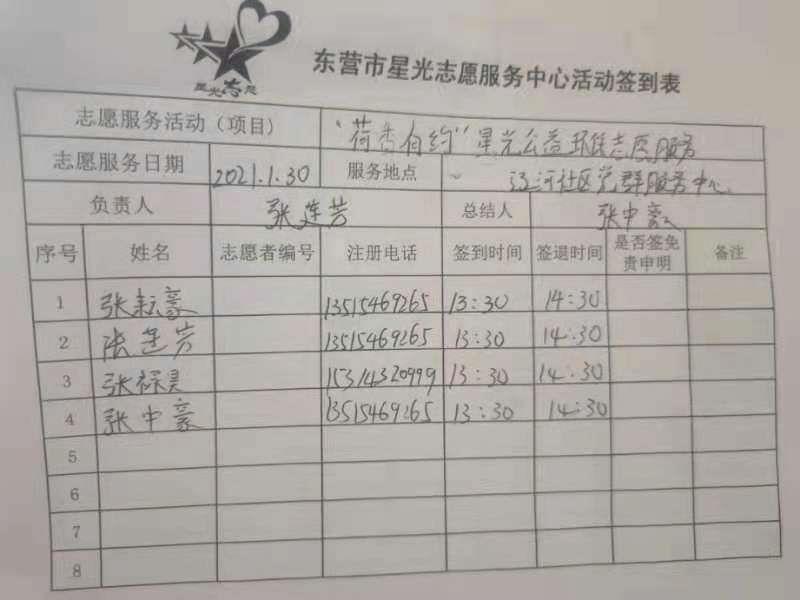 星光志愿
东营市星光志愿服务中心活动签到表
志愿服务活动（项目） "荷香有约"星光公益环保志愿服务
志愿服务日期 2021.1.30 服务地点 辽河社区党群服务中心
负责人 张莲芳 总结人 张中豪
序号 姓名 志愿者编号 注册电话 签到时间 签退时间 是否签免责申明 备注
1 张耘豪 13515469265 13:30 14:30
2 张莲芳 13515469265 13:30 14:30
3 张禄昊 15314320999 13:30 14:30
4 张中豪 13515469265 13:30 14:30
5
6
7
8